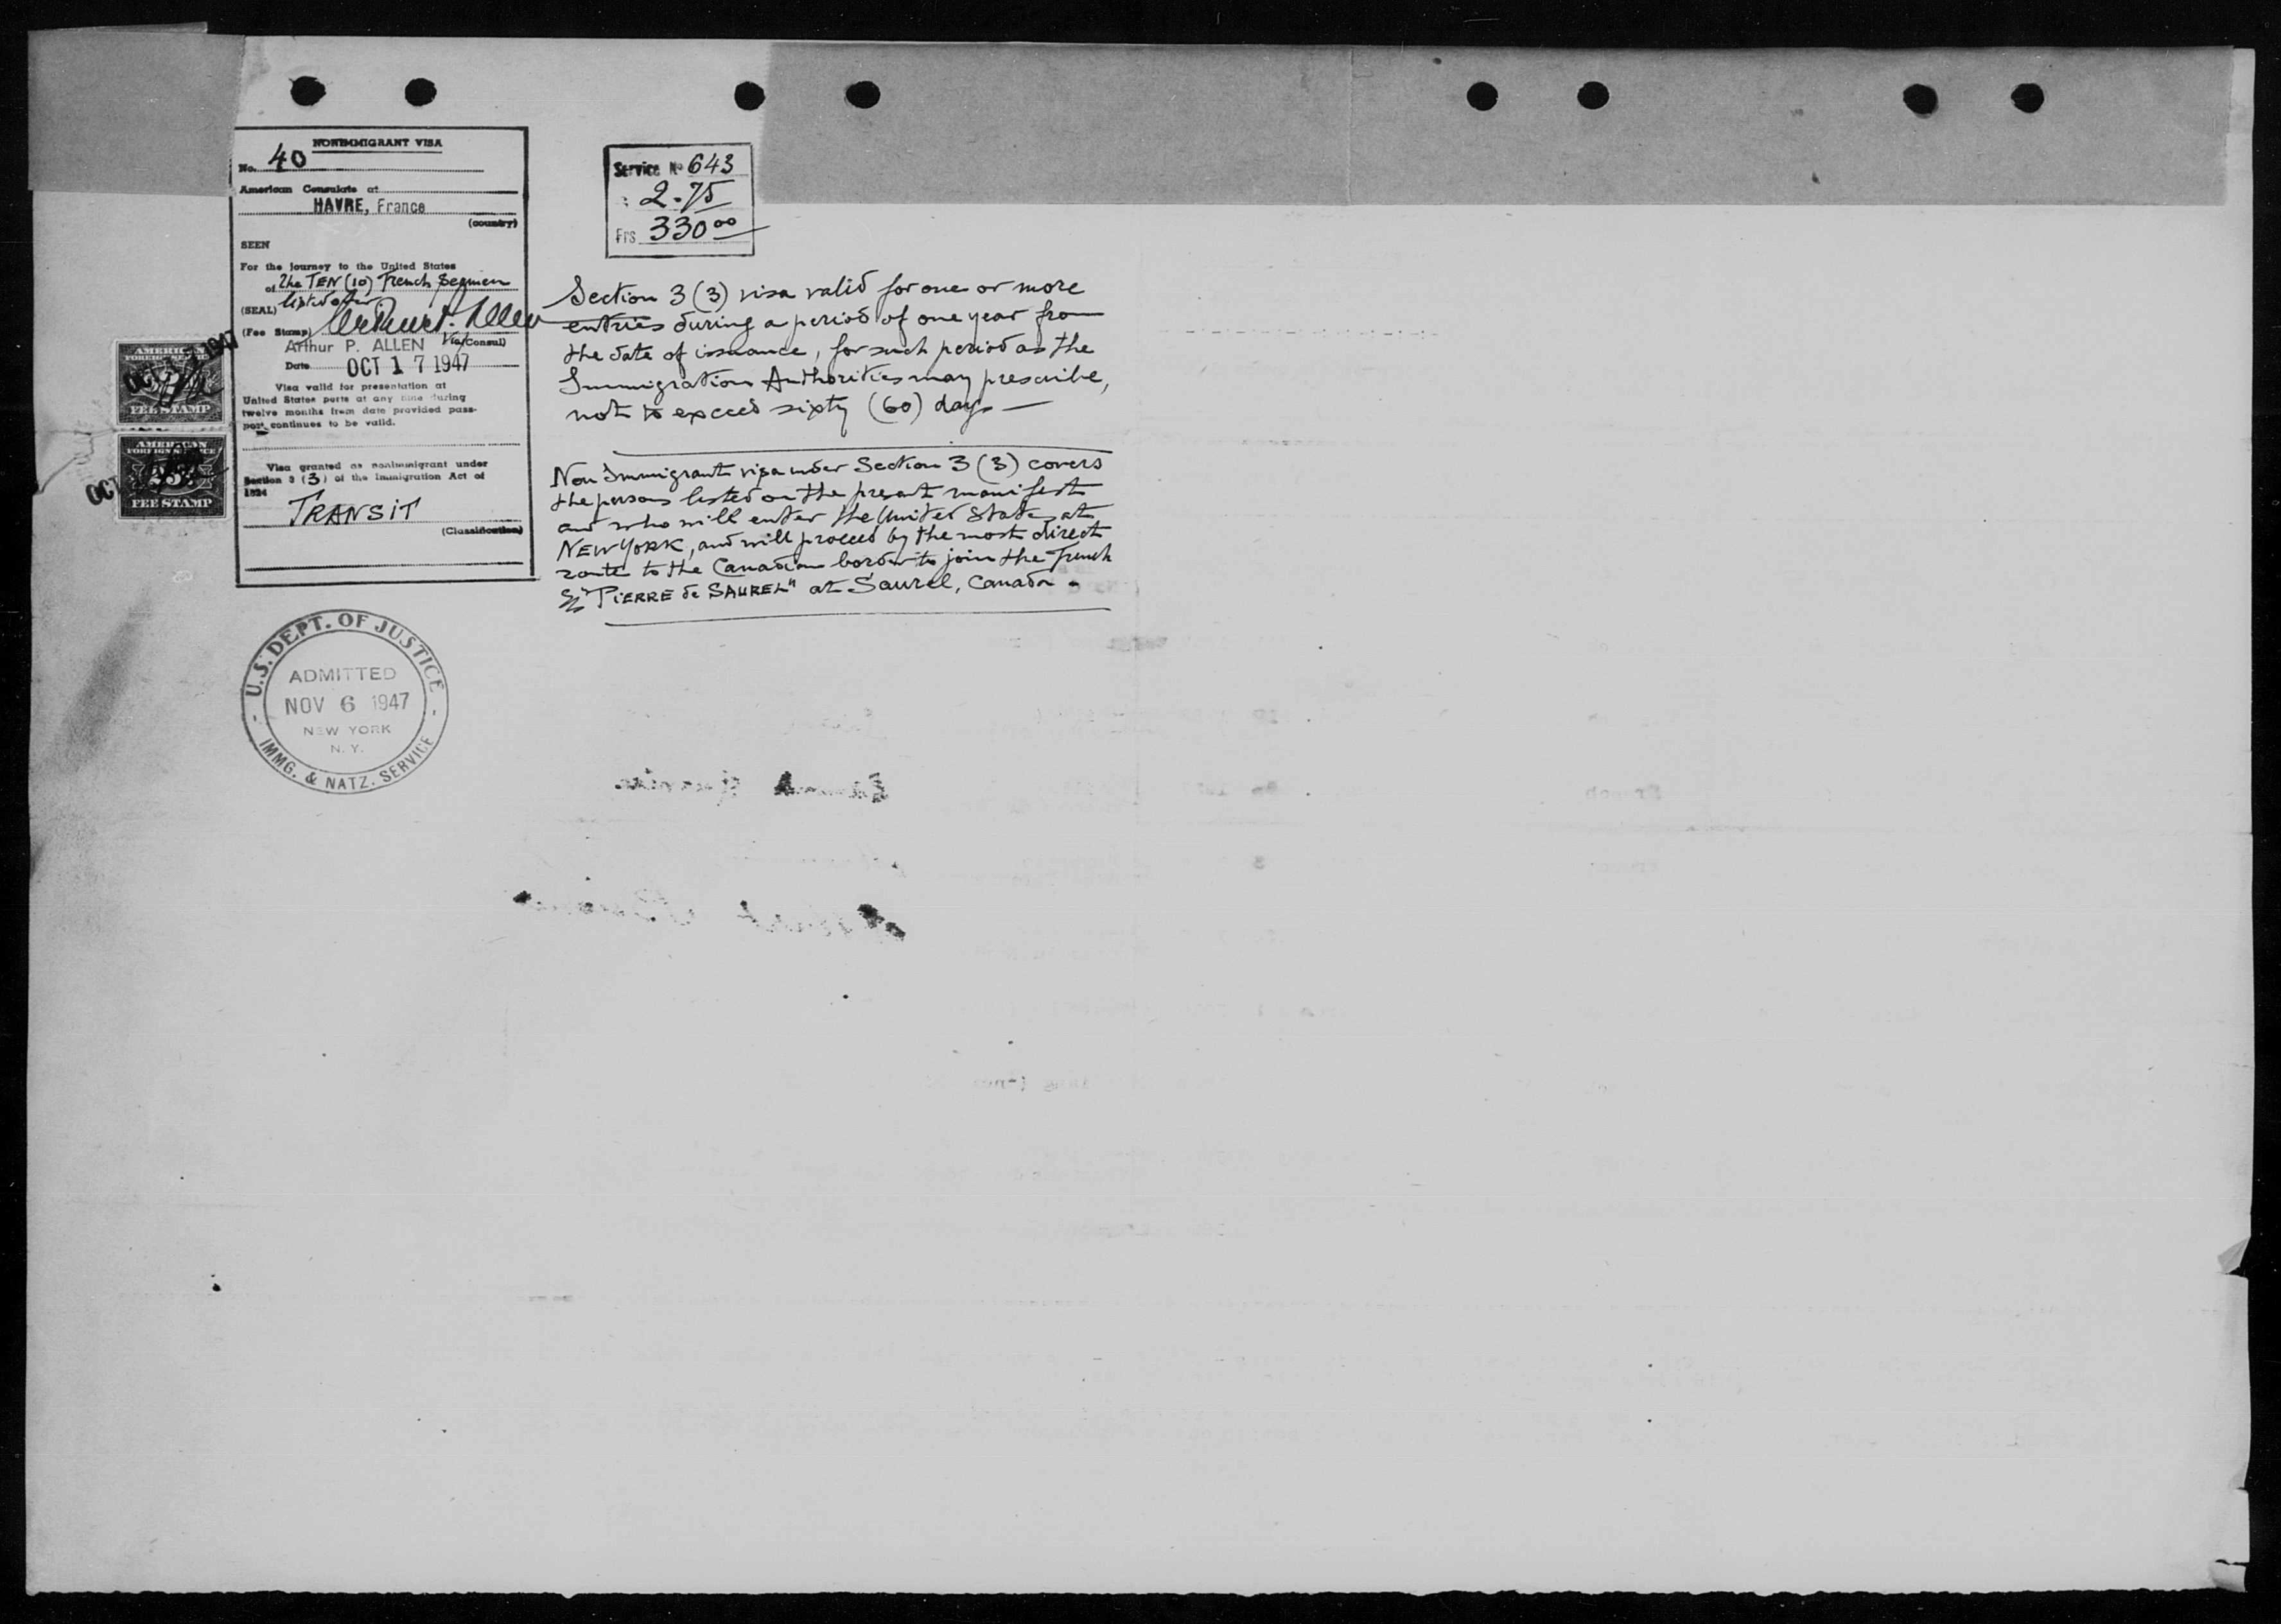 NONIMMIGRANT VISA
No. 40
American Consulate at
HAVRE, France
(country)
SEEN
For the journey to the United States
of The TEN (10) French Seamen
(SEAL) listed
(Fee Stamp) Arthur P. Allen
Arthur P. ALLEN Vice Consul)
Date OCT 17 1947
Visa valid for presentation at
United States ports at any time during
twelve months from date provided pass-
port continues to be valid.
Visa granted as nonimmigrant under
Section 3 (3) of the Immigration Act of
1924
TRANSIT
(Classification)
AMERICAN
FOREIGN SERVICE
FEE STAMP
AMERICAN
FOREIGN SERVICE
FEE STAMP
Service No 643
2.75
Frs 330 00
Section 3 (3) visa valid for one or more
entries during a period of one year from
the date of issuance, for such period as the
Immigration Authorities may prescribe,
not to exceed sixty (60) days —
Non Immigrant visa under Section 3 (3) covers
the persons listed on the present manifest
and who will enter the United States at
NEW YORK, and will proceed by the most direct
route to the Canadian border to join the French
S/S "PIERRE de SAUREL" at Saurel, Canada -
U.S. DEPT. OF JUSTICE
ADMITTED
NOV 6 1947
NEW YORK
N. Y.
IMMG. & NATZ. SERVICE